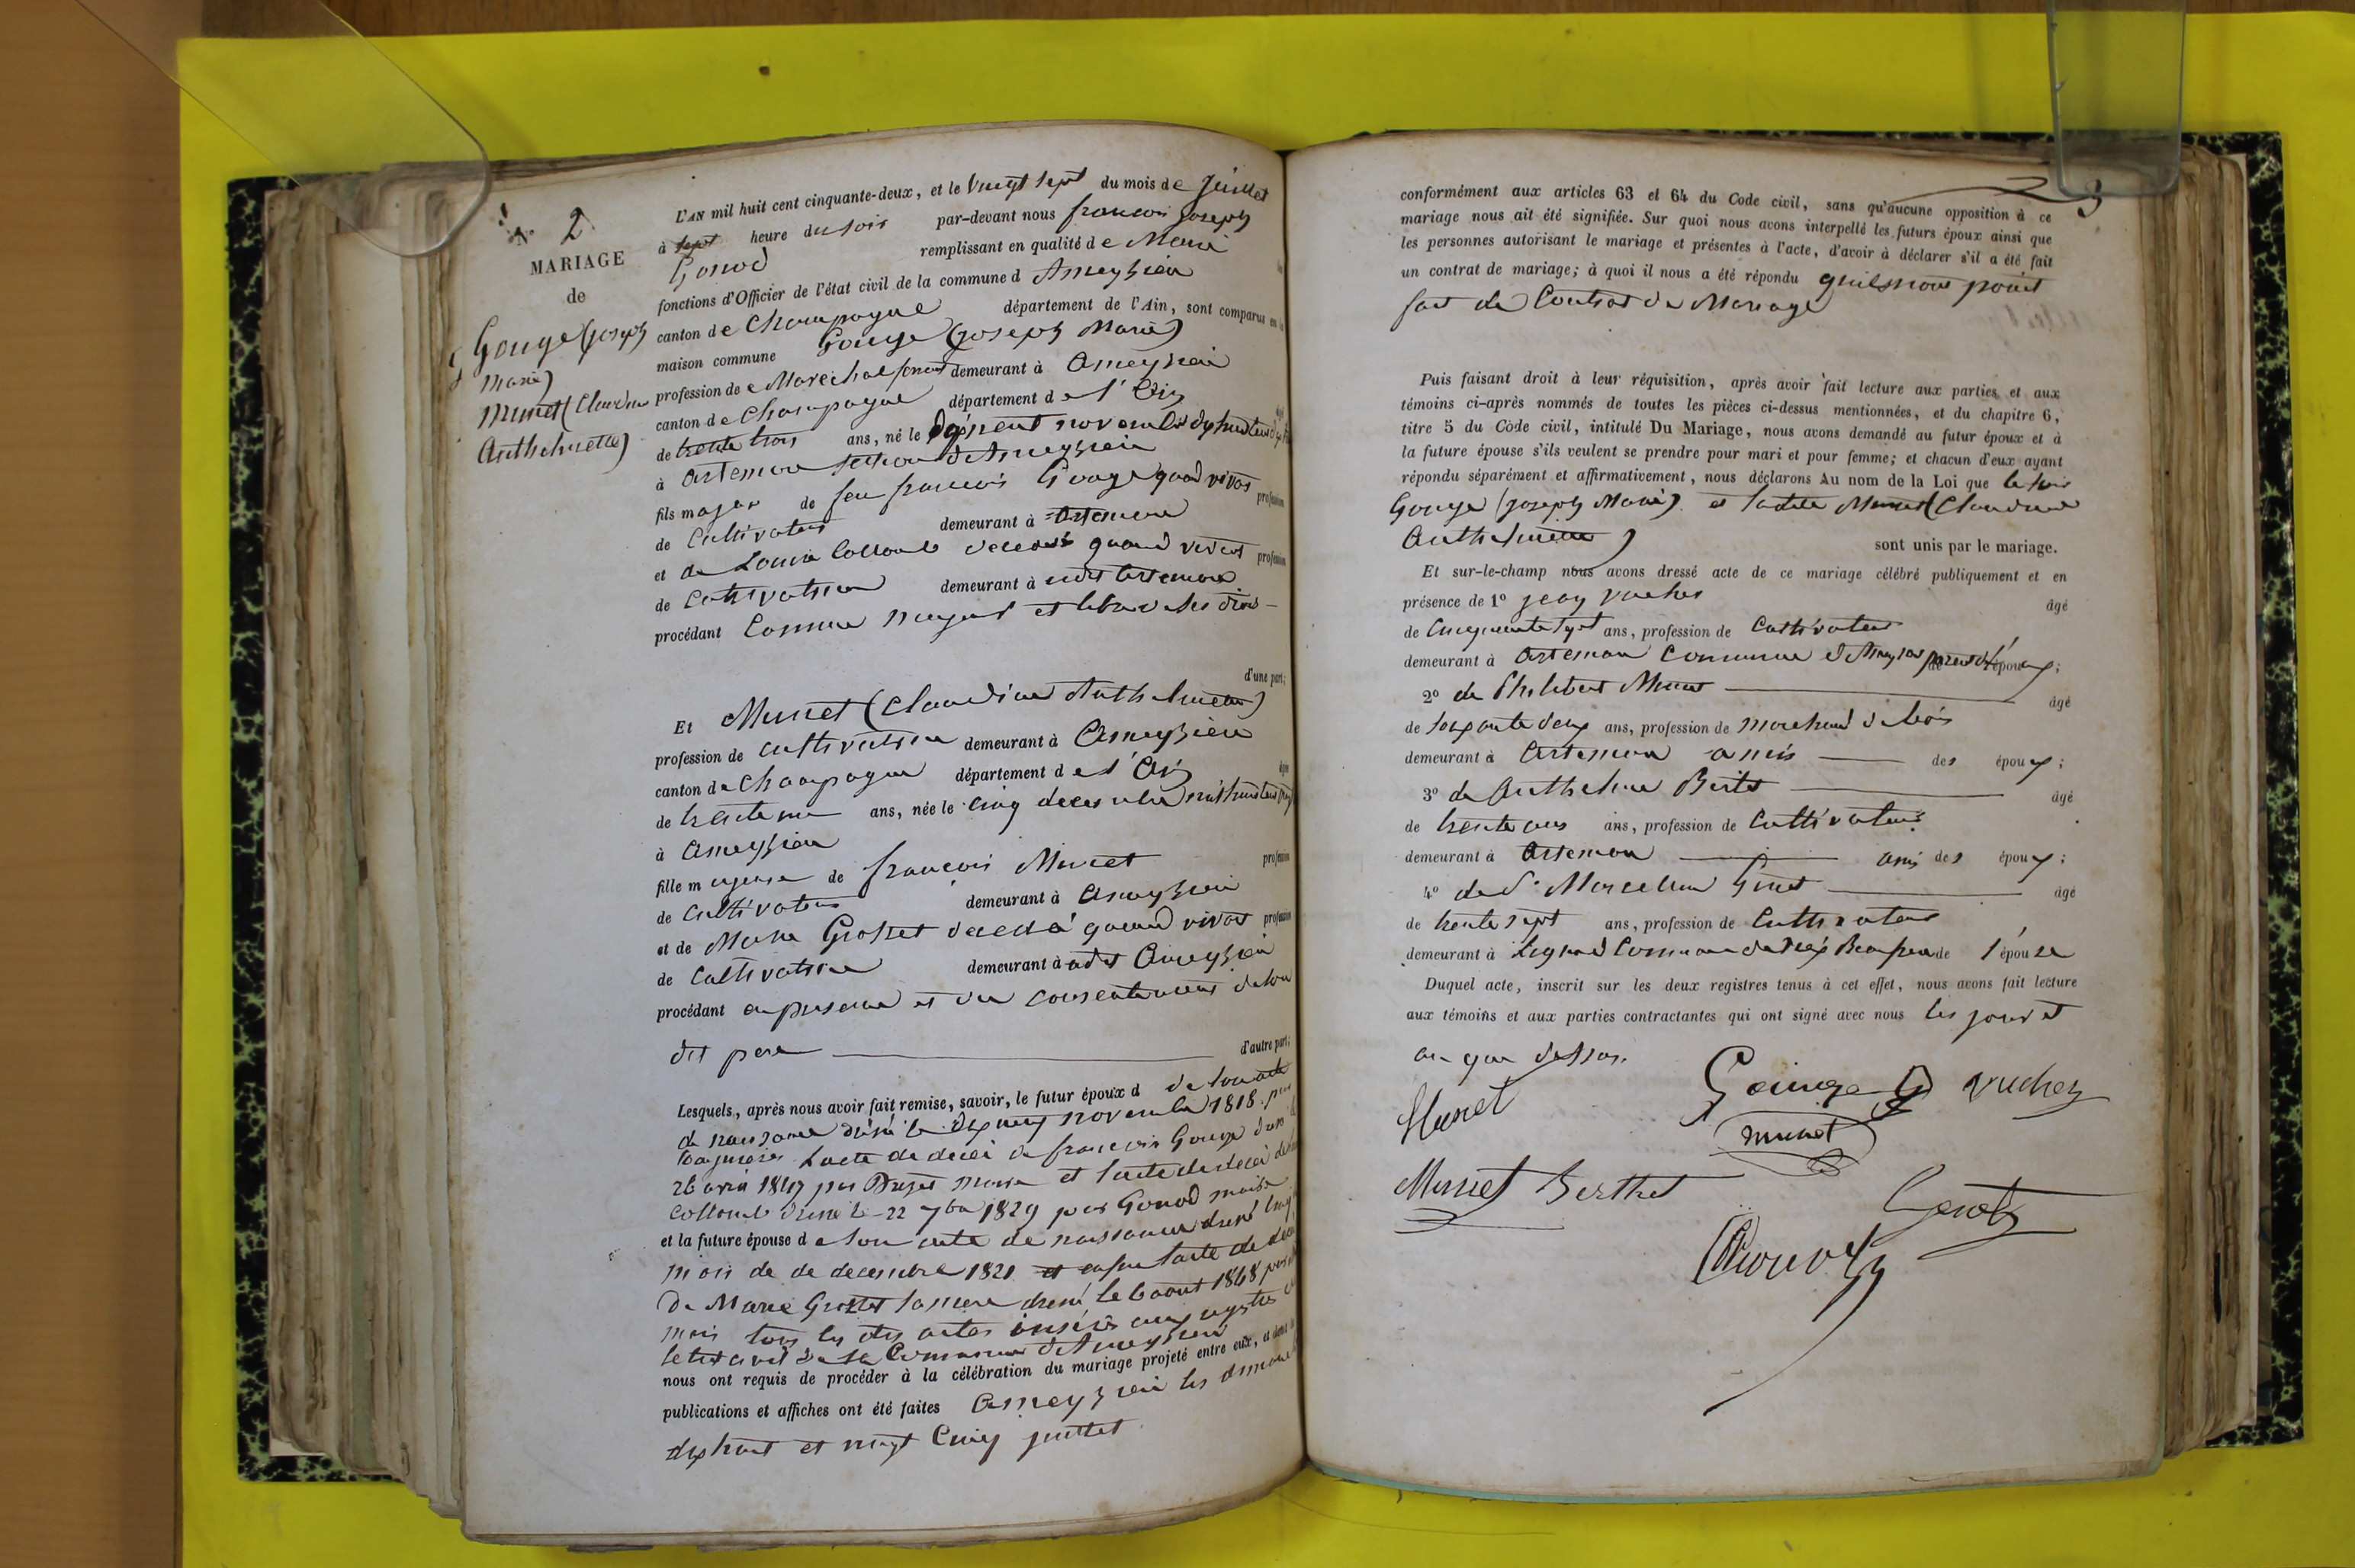 2
MARIAGE
de
Gouge (joseph
Marie)
Munet (Claudine
Anthelmette)
L'AN mil huit cent cinquante-deux, et le vingt sept du mois de juillet
à sept heure du soir par-devant nous francois joseph
Gonod remplissant en qualité de Maire
fonctions d'Officier de l'état civil de la commune d Ameyzieu
canton de Champagne département de l'Ain, sont comparus en la
maison commune Gouge (joseph Marie)
profession de Marechal ferrant demeurant à Ameyzieu
canton de Champagne département de l'Ain
de trente trois ans, né le dixneuf novembre dixhuitcent
à Artemare section d'Ameyzieu
fils majeur de feu francois Gouge quand vivat profession
de Cultivateur demeurant à Artemare
et de Louise Collomb décédés quand vivat profession
de Cultivatrice demeurant à udit Artemare
procédant comme majeur et libre de ses droits
d'une part;
Et Munet (Claudine Anthelmette)
profession de cultivatrice demeurant à Ameyzieu
canton de Champagne département de l'Ain
de trente un ans, née le cinq decembre mil huit cent
à Ameyzieu
fille majeure de francois Munet profession
de cultivateur demeurant à Ameyzieu
et de Marie Grosset décédé quand vivat profession
de Cultivatrice demeurant à udit Ameyzieu
procédant en presence et du consentement de son
dit pere d'autre part;
Lesquels, après nous avoir fait remise, savoir, le futur époux d de son acte
de naissance dréssé le dix neuf novembre 1818 par
l'acte de décés de francois Gouge
26 avril 1849 par maire et l'acte de décés de
Collomb dressé le 22 7bre 1829 par Gonod maire
et la future épouse de son acte de naissance dressé cinq
mois de de decembre 1821 et enfin l'acte de décés
de Marie Grosset sa mere dressé le 6 aout 1848 par
tous les dits actes insérés aux registres
de la Commune d'Ameyzieu
nous ont requis de procéder à la célébration du mariage projeté entre eux, et dont les
publications et affiches ont été faites Ameyzieu les dimanches
dix huit et vingt cinq juillet
conformément aux articles 63 et 64 du Code civil, sans qu'aucune opposition à ce
mariage nous ait été signifiée. Sur quoi nous avons interpellé les futurs époux ainsi que
les personnes autorisant le mariage et présentes à l'acte, d'avoir à déclarer s'il a été fait
un contrat de mariage; à quoi il nous a été répondu quils nont point
fait de Contrat de Mariage
Puis faisant droit à leur réquisition, après avoir fait lecture aux parties et aux
témoins ci-après nommés de toutes les pièces ci-dessus mentionnées, et du chapitre 6,
titre 5 du Code civil, intitulé Du Mariage, nous avons demandé au futur époux et à
la future épouse s'ils veulent se prendre pour mari et pour femme; et chacun d'eux ayant
répondu séparément et affirmativement, nous déclarons Au nom de la Loi que
Gouge (joseph Marie) et ladite Munet (Claudine
Anthelmette) sont unis par le mariage.
Et sur-le-champ nous avons dressé acte de ce mariage célébré publiquement et en
présence de 1º jean vuchez âgé
de cinquante sept ans, profession de Cultivateur
demeurant à Artemare Commune d'Ameyzieu de époux;
2º de Philibert Munet âgé
de soixante deux ans, profession de marchand de bois
demeurant à Artemare amis des époux;
3º de Anthelme Bertet âgé
de trente ans ans, profession de Cultivateur
demeurant à Artemare amis des époux;
4º de Sr Marcellin Ginet âgé
de trente sept ans, profession de Cultivateur
demeurant à Commune de de l'épouse
Duquel acte, inscrit sur les deux registres tenus à cet effet, nous avons fait lecture
aux témoins et aux parties contractantes qui ont signé avec nous les jour et
an que dessus.
Munet Gouge vuchez
munet
Munet Berthet